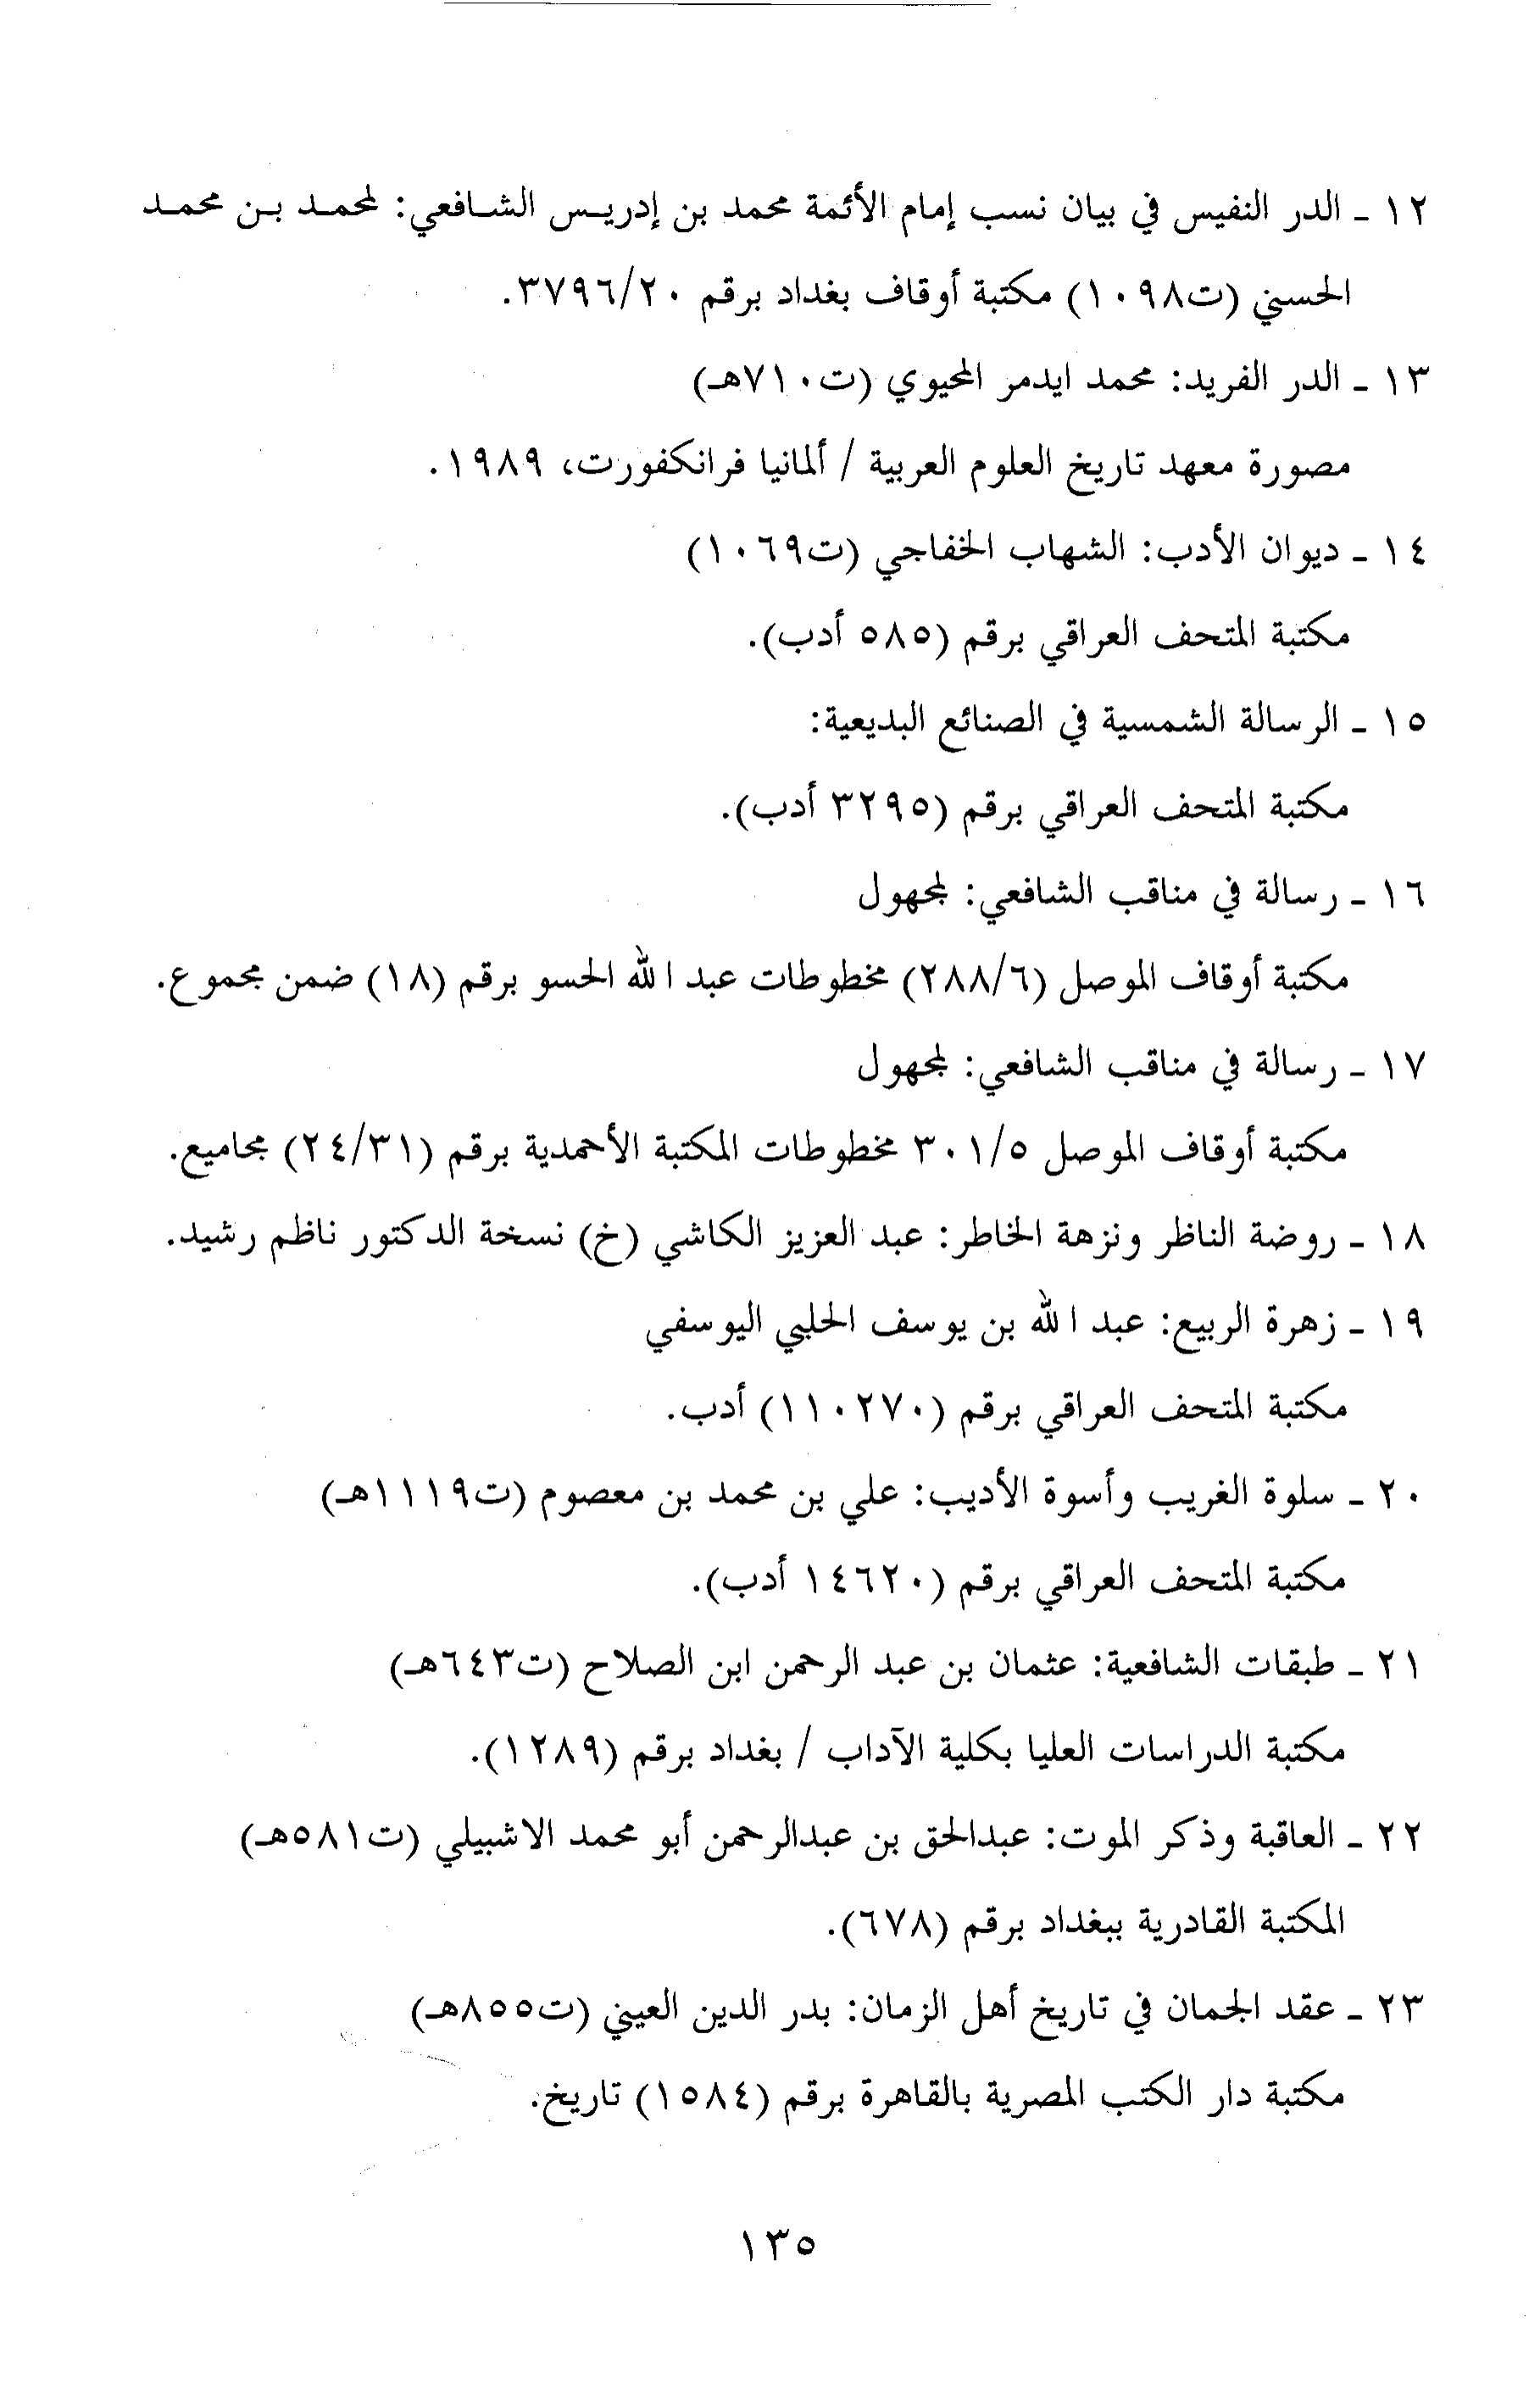 ١٢ ـ الدر النفيس في بيان نسب إمام الأئمة محمد بن إدريس الشافعي: لمحمد بن محمد
الحسني (ت١٠٩٨) مكتبة أوقاف بغداد برقم ٣٧٩٦/٢٠.
١٣ ـ الدر الفريد: محمد ايدمر المحيوي (ت٧١٠هـ)
مصورة معهد تاريخ العلوم العربية / ألمانيا فرانكفورت، ١٩٨٩.
١٤ ـ ديوان الأدب: الشهاب الخفاجي (ت١٠٦٩)
مكتبة المتحف العراقي برقم (٥٨٥ أدب).
١٥ ـ الرسالة الشمسية في الصنائع البديعية:
مكتبة المتحف العراقي برقم (٣٢٩٥ أدب).
١٦ ـ رسالة في مناقب الشافعي: لمجهول
مكتبة أوقاف الموصل (٢٨٨/٦) مخطوطات عبد الله الحسو برقم (١٨) ضمن مجموع.
١٧ ـ رسالة في مناقب الشافعي: لمجهول
مكتبة أوقاف الموصل ٣٠١/٥ مخطوطات المكتبة الأحمدية برقم (٢٤/٣١) مجاميع.
١٨ ـ روضة الناظر ونزهة الخاطر: عبد العزيز الكاشي (خ) نسخة الدكتور ناظم رشيد.
١٩ ـ زهرة الربيع: عبد الله بن يوسف الحلبي اليوسفي
مكتبة المتحف العراقي برقم (١١٠٢٧٠) أدب.
٢٠ ـ سلوة الغريب وأسوة الأديب: علي بن محمد بن معصوم (ت١١١٩هـ)
مكتبة المتحف العراقي برقم (١٤٦٢٠ أدب).
٢١ ـ طبقات الشافعية: عثمان بن عبد الرحمن ابن الصلاح (ت٦٤٣هـ)
مكتبة الدراسات العليا بكلية الآداب / بغداد برقم (١٢٨٩).
٢٢ ـ العاقبة وذكر الموت: عبدالحق بن عبدالرحمن أبو محمد الاشبيلي (ت٥٨١هـ)
المكتبة القادرية ببغداد برقم (٦٧٨).
٢٣ ـ عقد الجمان في تاريخ أهل الزمان: بدر الدين العيني (ت٨٥٥هـ)
مكتبة دار الكتب المصرية بالقاهرة برقم (١٥٨٤) تاريخ.
١٣٥